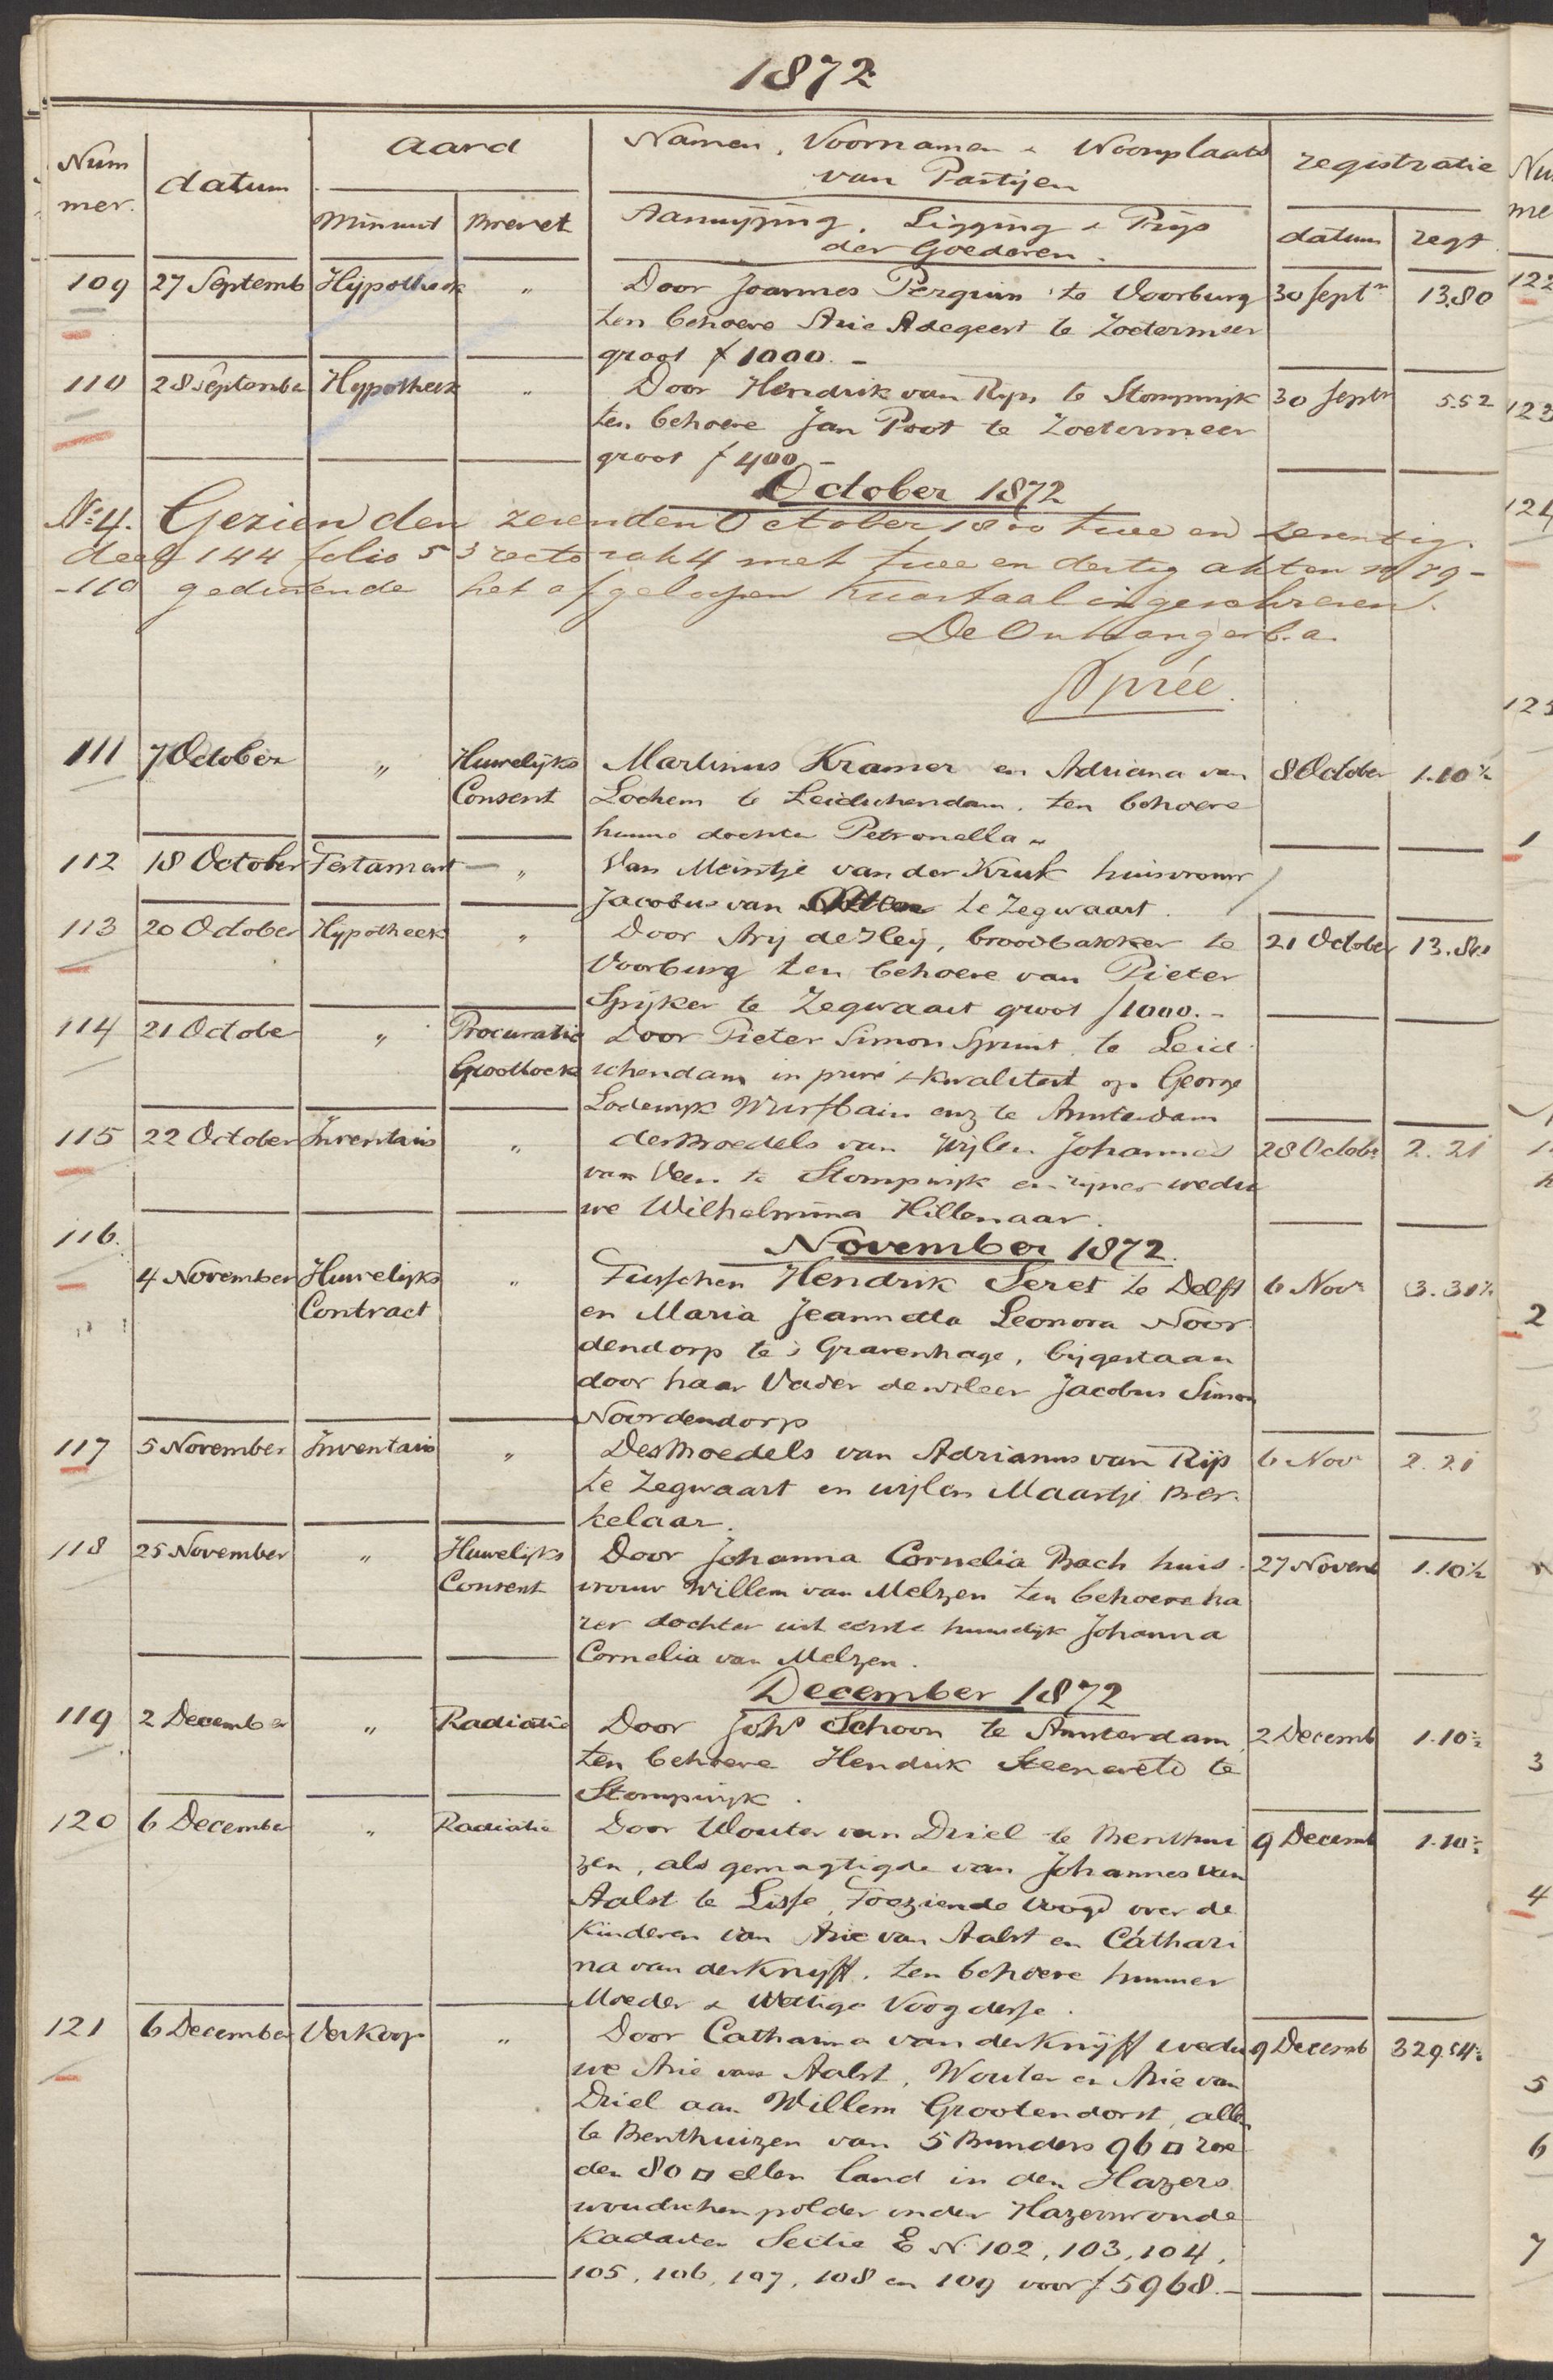 1872
Nummer. datum Aard Namen, Voornamen & Woonplaats van Partijen registratie
Minuut Brevet Aanwijzing, Ligging & Prijs der Goederen. datum regt.
109 27 Septemb Hypotheek „ Door Joannes Perquin te Voorburg 30 Septr 13.80
ten behoeve Arie Adegeest te Zoetermeer
groot f 1000.-
110 28 Septembe Hypotheek „ Door Hendrik van Rijn te Stompwijk 30 Septr 5.52
ten behoeve Jan Poot te Zoetermeer
groot f 400.-
October 1872
No 4. Gezien den zevenden October 1800 twee en zeventig.
deel 144 folio 53 recto vak 4 met twee en dertig akten no 79-
-110 gedurende het afgeloopen kwartaal ingeschreven.
De Ontvanger b.a.
Sprée.
111 7 October „ Huwelijks Martinus Kramer en Adriana van 8 October 1.10½
Consent Lochem te Leidschendam, ten behoeve
hunne dochter Petronella
112 18 October Testament „ Van Meintje van der Kruk huisvrouw
Jacobus van te Zegwaart.
113 20 October Hypotheek „ Door Arij de Heij, broodbakker te 21 October 13.80
Voorburg ten behoeve van Pieter
Spijker te Zegwaart groot f 1000.-
114 21 October „ Procuratie Door Pieter Simon Spruit te Leid
Grootboek schendam in privé & kwaliteit op George
Lodewijk Wurfbain enz te Amsterdam
115 22 October Inventaris „ des Boedels van wijlen Johannes 28 Octobr 2.21
van Veen te Stompwijk en zijner wedu
we Wilhelmina Hillenaar.
116.
November 1872.
4 November Huwelijks „ Tusschen Hendrik Seret te Delft 6 Novr 3.31½
Contract en Maria Jeannetta Leonora Noor
dendorp te s Gravenhage, bijgestaan
door haar Vader de Heer Jacobus Simon
Noordendorp
117 5 November Inventaris „ Des Boedels van Adrianus van Rijs 6 Novr 2.21
te Zegwaart en wijlen Maartje Ber-
kelaar.
118 25 November „ Huwelijks Door Johanna Cornelia Bach huis- 27 Novemb 1.10½
Consent vrouw Willem van Melzen ten behoeve ha
rer dochter uit eerste huwelijk Johanna
Cornelia van Melzen.
December 1872
119 2 December „ Radiatie Door Johs Schoon te Amsterdam, 2 Decemb 1.10½
ten behoeve Hendrik te
Stompwijk.
120 6 December „ Radiatie Door Wouter van Driel te Benthui 9 Decemb 1.10½
zen, als gemagtigde van Johannes van
Aalst te Lisse, Toeziende Voogd over de
Kinderen van Arie van Aalst en Cathari
na van der Knijff, ten behoeve hunner
Moeder & Wettige Voogdesse.
121 6 December Verkoop „ Door Catharina van der Knijff wedu 9 Decemb 329.54½
we Arie van Aalst, Wouter en Arie van
Driel aan Willem Grootendorst, allen
te Benthuizen van 5 Bunders 96 □ roe
den 80 □ ellen land in den Hazers
woudschen polder onder Hazerswoude
Kadaster Sectie E No 102, 103, 104,
105, 106, 107, 108 en 109 voor f 5968.-